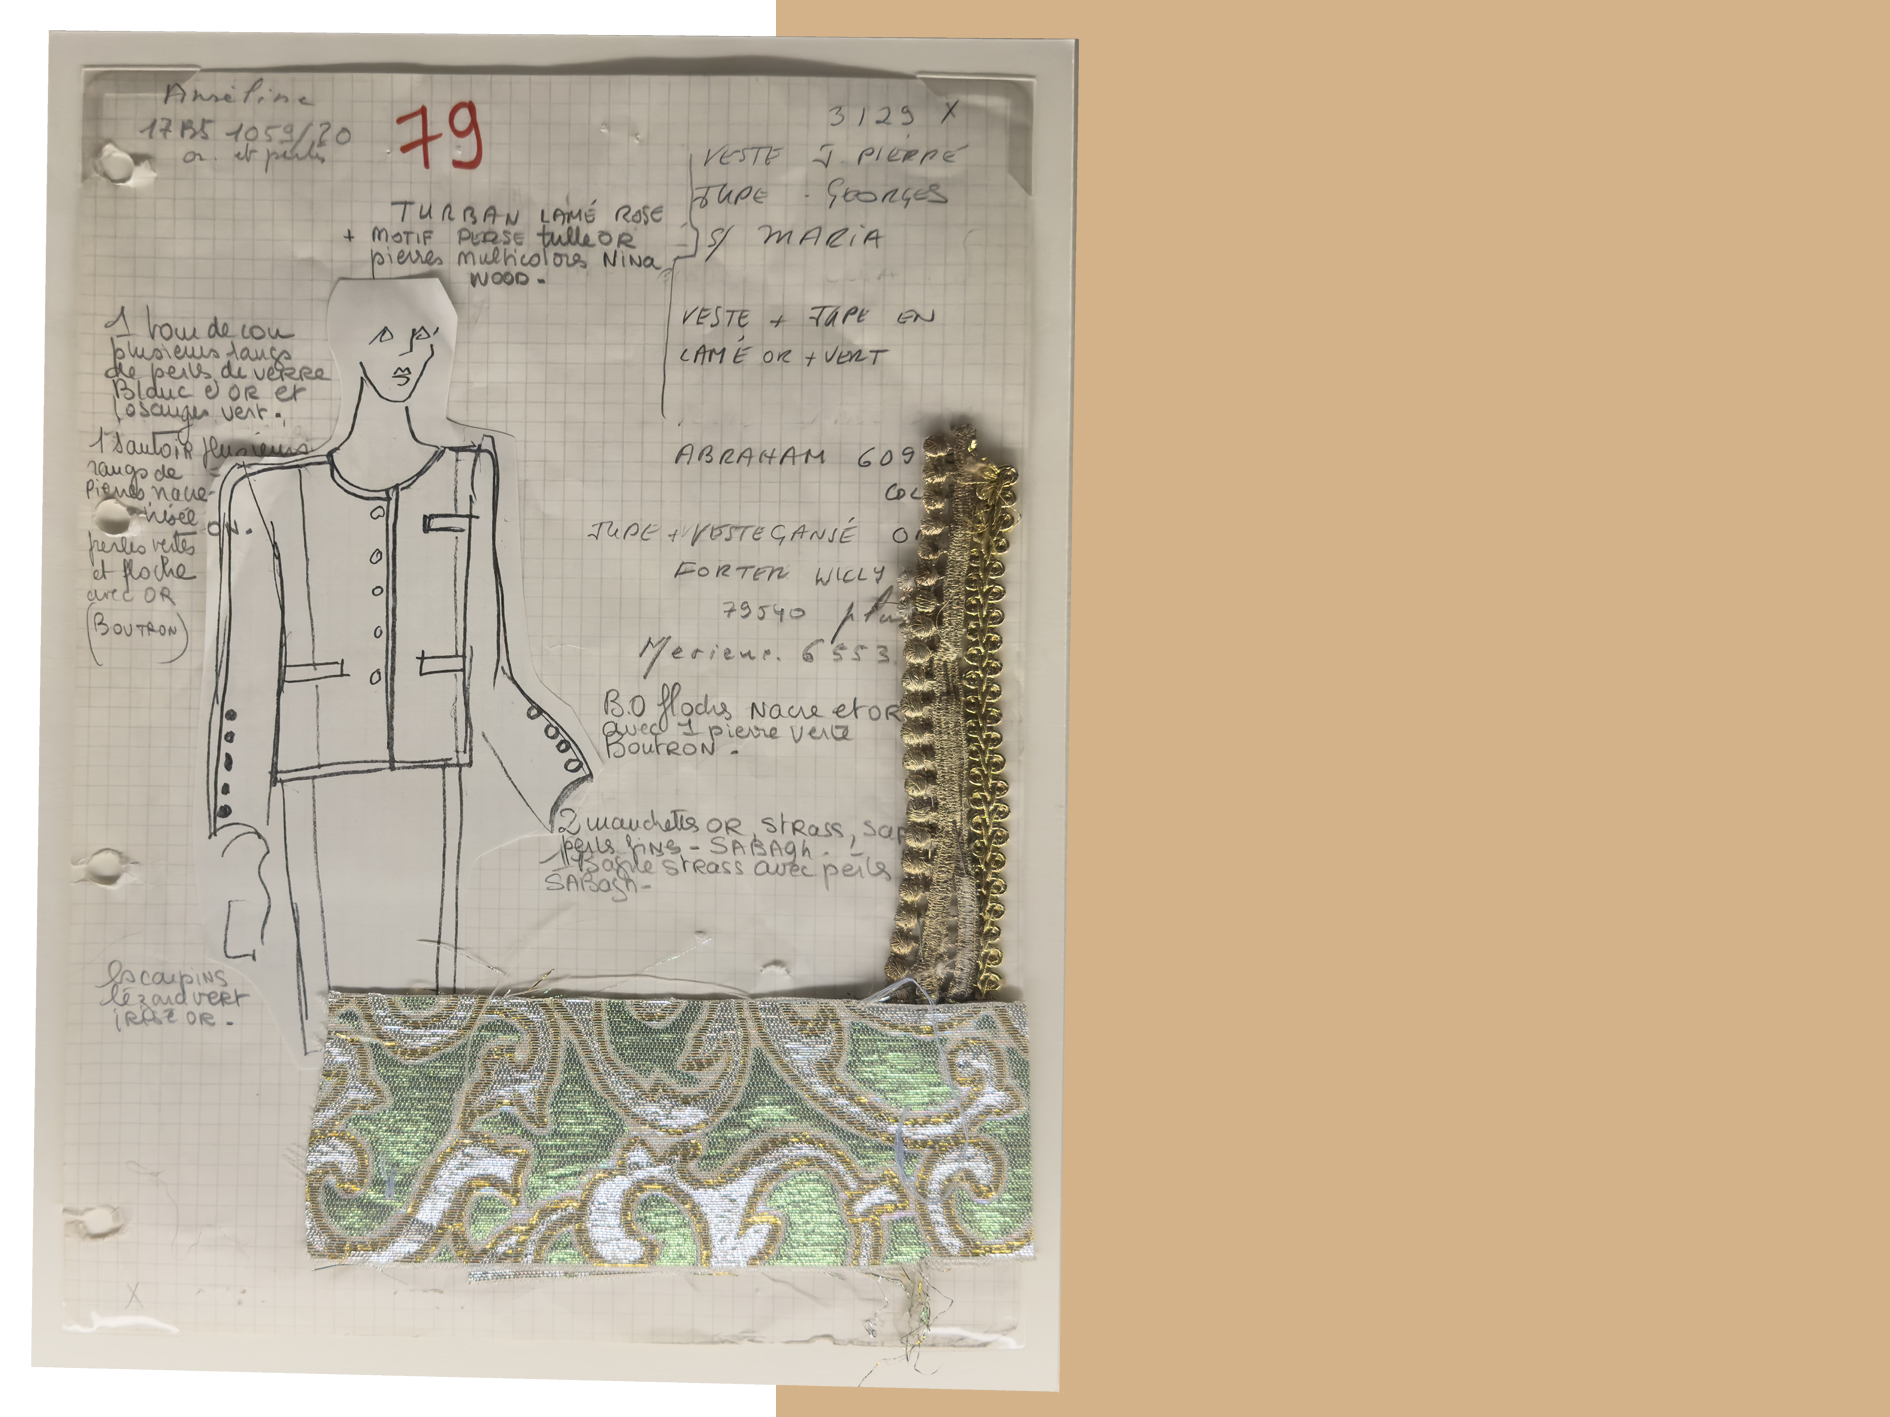 17B5 1059/20
or et perles
79
3129 X
VESTE J PIERRE
JUPE - GEORGES
S/ MARIA
TURBAN LAMÉ ROSE
+ MOTIF PERSE tulle OR
pierres multicolores NiNa
WOOD.
VESTE + JUPE EN
LAMÉ OR + VERT
1 tour de cou
plusieurs rangs
de perles de VERRE
Blanc et OR et
losanges vert.
1 Sautoir plusieurs
rangs de
Pierres nacre
irisée ON.
perles vertes
et floche
avec OR
(BOUTRON)
ABRAHAM 609
COL
JUPE + VESTE GANSÉ
FORTER WILLY
79540
6553
B.O floches Nacre et OR
avec 1 pierre verte
BOUTRON.
2 manchettes OR, STRASS,
perles fines - SABAgh.
1 Bague STRASS avec perles
SABagh-
Escarpins
lézard VERT
IRISÉ OR.
X